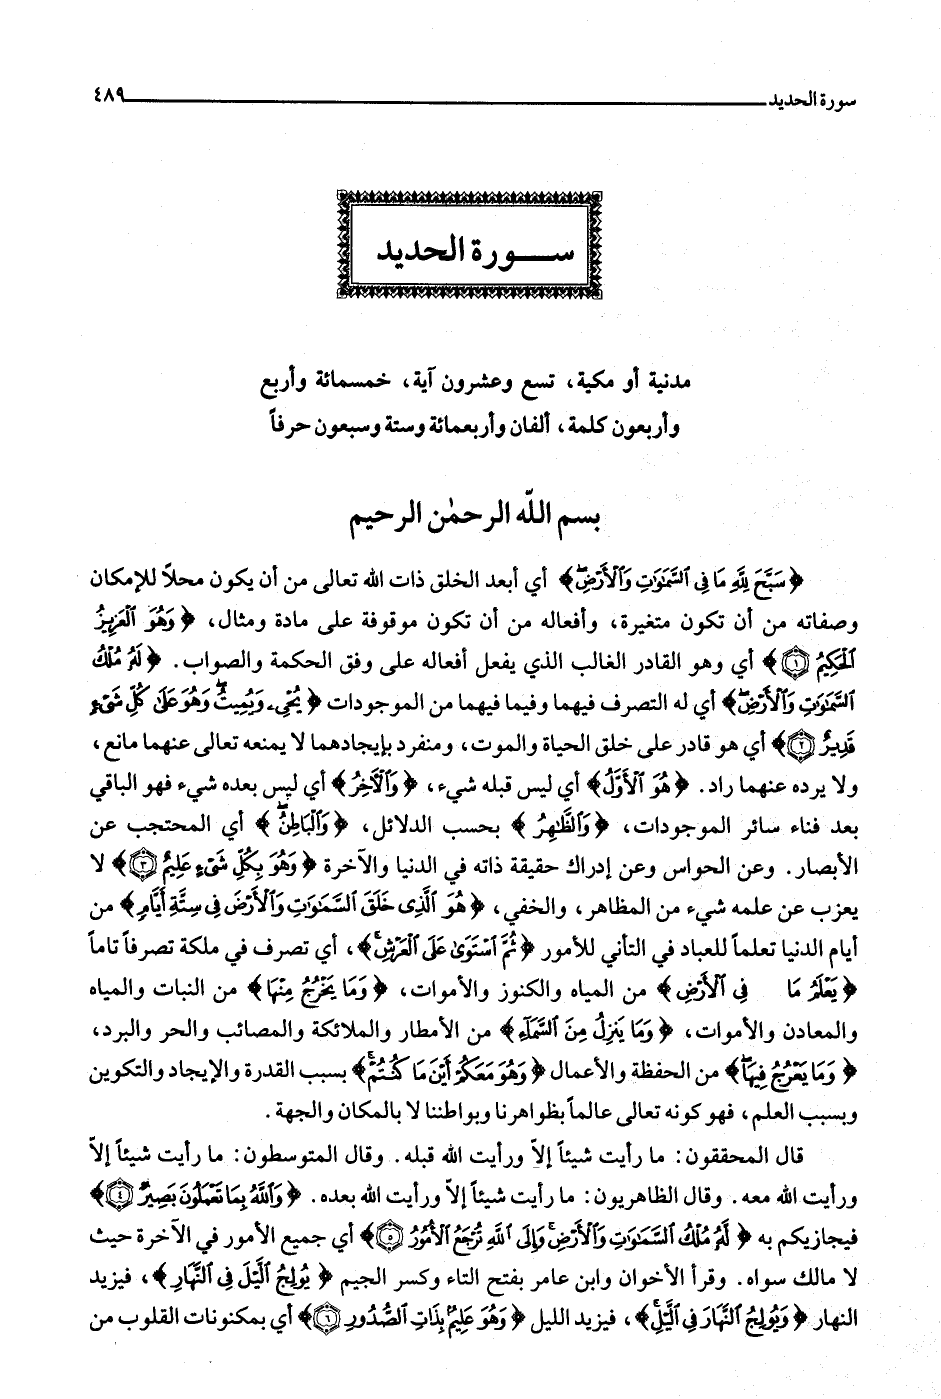 سورة الحديد ٤٨٩
ســورة الحديد
مدنية أو مكية، تسع وعشرون آية، خمسمائة وأربع
وأربعون كلمة، ألفان وأربعمائة وستة وسبعون حرفاً
بسم اللّه الرحمٰن الرحيم
﴿سَبَّحَ لِلَّهِ مَا فِي ٱلسَّمَٰوَٰتِ وَٱلْأَرْضِۖ﴾ أي أبعد الخلق ذات الله تعالى من أن يكون محلاً للإمكان
وصفاته من أن تكون متغيرة، وأفعاله من أن تكون موقوفة على مادة ومثال، ﴿وَهُوَ ٱلْعَزِيزُ
ٱلْحَكِيمُ ۝١﴾ أي وهو القادر الغالب الذي يفعل أفعاله على وفق الحكمة والصواب. ﴿لَهُۥ مُلْكُ
ٱلسَّمَٰوَٰتِ وَٱلْأَرْضِۖ﴾ أي له التصرف فيهما وفيما فيهما من الموجودات ﴿يُحْيِۦ وَيُمِيتُۖ وَهُوَ عَلَىٰ كُلِّ شَيْءٍ
قَدِيرٌ ۝٢﴾ أي هو قادر على خلق الحياة والموت، ومنفرد بإيجادهما لا يمنعه تعالى عنهما مانع،
ولا يرده عنهما راد. ﴿هُوَ ٱلْأَوَّلُ﴾ أي ليس قبله شيء، ﴿وَٱلْآخِرُ﴾ أي ليس بعده شيء فهو الباقي
بعد فناء سائر الموجودات، ﴿وَٱلظَّٰهِرُ﴾ بحسب الدلائل، ﴿وَٱلْبَاطِنُۖ﴾ أي المحتجب عن
الأبصار. وعن الحواس وعن إدراك حقيقة ذاته في الدنيا والآخرة ﴿وَهُوَ بِكُلِّ شَيْءٍ عَلِيمٌ ۝٣﴾ لا
يعزب عن علمه شيء من المظاهر، والخفي، ﴿هُوَ ٱلَّذِي خَلَقَ ٱلسَّمَٰوَٰتِ وَٱلْأَرْضَ فِي سِتَّةِ أَيَّامٍ﴾ من
أيام الدنيا تعلماً للعباد في التأني للأمور ﴿ثُمَّ ٱسْتَوَىٰ عَلَى ٱلْعَرْشِۚ﴾، أي تصرف في ملكة تصرفاً تاماً
﴿يَعْلَمُ مَا فِي ٱلْأَرْضِ﴾ من المياه والكنوز والأموات، ﴿وَمَا يَخْرُجُ مِنْهَا﴾ من النبات والمياه
والمعادن والأموات، ﴿وَمَا يَنزِلُ مِنَ ٱلسَّمَآءِ﴾ من الأمطار والملائكة والمصائب والحر والبرد،
﴿وَمَا يَعْرُجُ فِيهَاۖ﴾ من الحفظة والأعمال ﴿وَهُوَ مَعَكُمْ أَيْنَ مَا كُنتُمْۚ﴾ بسبب القدرة والإيجاد والتكوين
وبسبب العلم، فهو كونه تعالى عالماً بظواهرنا وبواطننا لا بالمكان والجهة.
قال المحققون: ما رأيت شيئاً إلاّ ورأيت الله قبله. وقال المتوسطون: ما رأيت شيئاً إلاّ
ورأيت الله معه. وقال الظاهريون: ما رأيت شيئاً إلاّ ورأيت الله بعده. ﴿وَٱللَّهُ بِمَا تَعْمَلُونَ بَصِيرٌ ۝٤﴾
فيجازيكم به ﴿لَّهُۥ مُلْكُ ٱلسَّمَٰوَٰتِ وَٱلْأَرْضِۚ وَإِلَى ٱللَّهِ تُرْجَعُ ٱلْأُمُورُ ۝٥﴾ أي جميع الأمور في الآخرة حيث
لا مالك سواه. وقرأ الأخوان وابن عامر بفتح التاء وكسر الجيم ﴿يُولِجُ ٱلَّيْلَ فِي ٱلنَّهَارِ﴾، فيزيد
النهار ﴿وَيُولِجُ ٱلنَّهَارَ فِي ٱلَّيْلِۚ﴾، فيزيد الليل ﴿وَهُوَ عَلِيمٌۢ بِذَاتِ ٱلصُّدُورِ ۝٦﴾ أي بمكنونات القلوب من